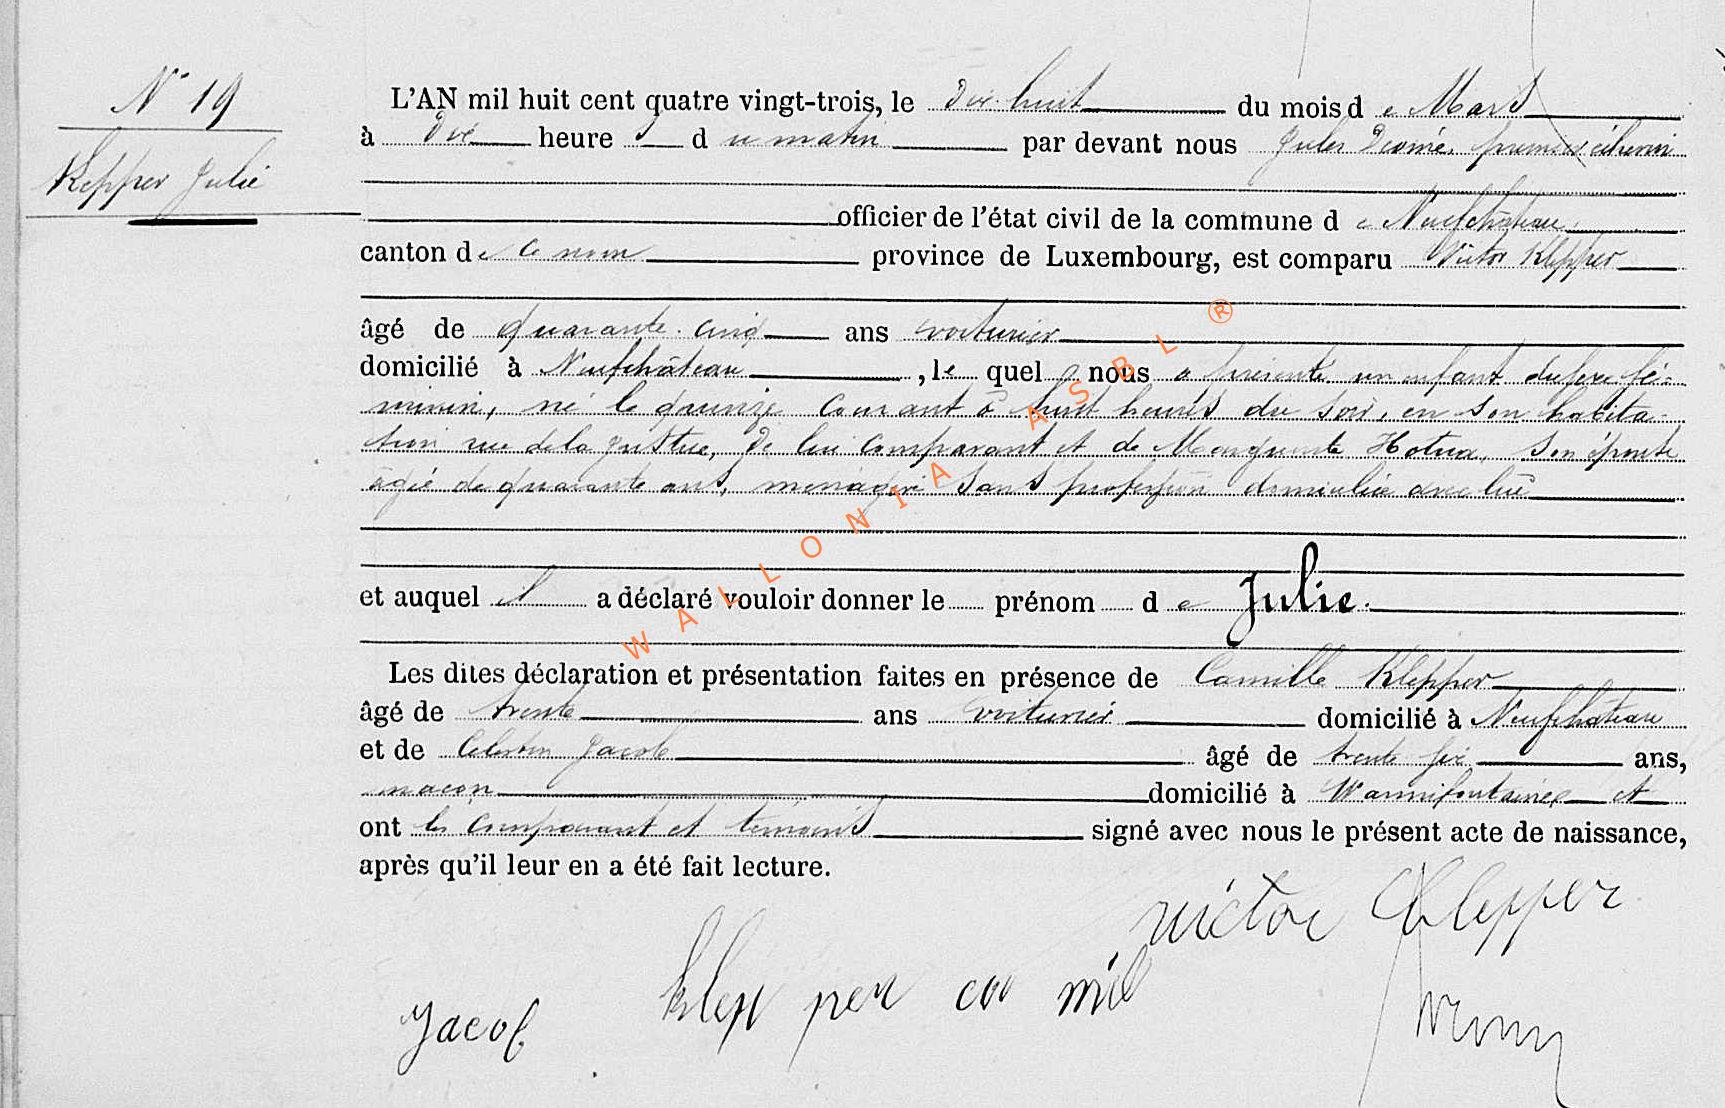 N° 19
Klepper Julie
L'AN mil huit cent quatre vingt-trois, le dix huit du mois de Mars
à dix heures du matin par devant nous Jules premier échevin
officier de l'état civil de la commune de Neufchâteau,
canton de ce nom province de Luxembourg, est comparu Victor Klepper
âgé de quarante-cinq ans voiturier
domicilié à Neufchâteau, lequel nous a présenté un enfant du sexe fé-
minin, né le quinze courant à huit heures du soir, en son habita-
tion rue de la Justice, de lui comparant et de Marguerite son épouse
âgée de quarante ans, ménagère sans profession domiciliée avec lui
et auquel il a déclaré vouloir donner le prénom de Julie.
Les dites déclaration et présentation faites en présence de Camille Klepper
âgé de trente ans voiturier domicilié à Neufchâteau
et de Célestin Jacob âgé de trente six ans,
maçon domicilié à Warmifontaine et
ont les comparant et témoins signé avec nous le présent acte de naissance,
après qu'il leur en a été fait lecture.
victor Klepper
Klepper ca mil
Jacob
WALLONIA ASBL ®